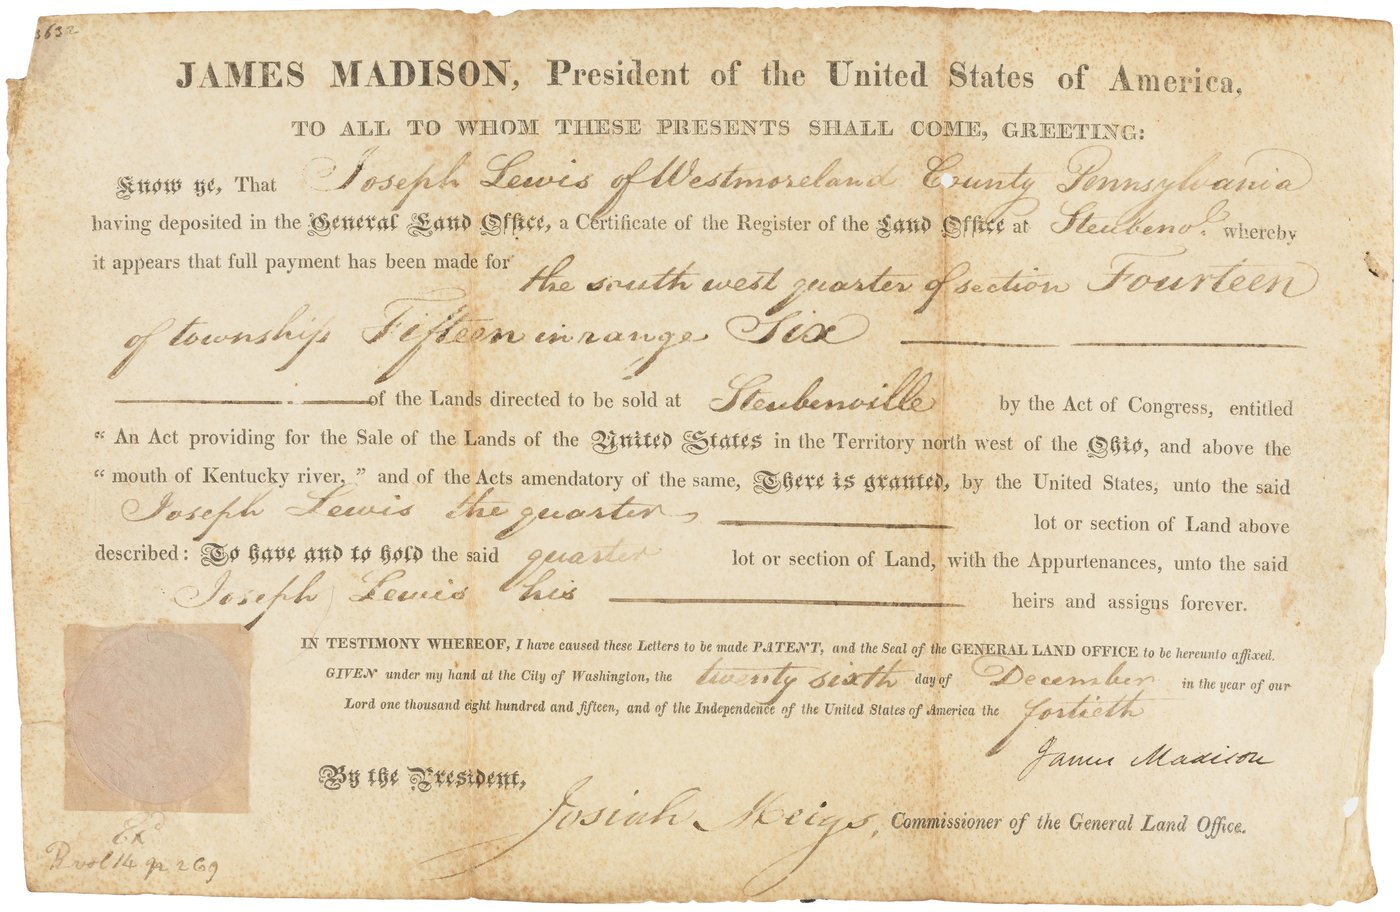 3632
JAMES MADISON, President of the United States of America,
TO ALL TO WHOM THESE PRESENTS SHALL COME, GREETING:
Know ye, That Joseph Lewis of Westmoreland County Pennsylvania
having deposited in the General Land Office, a Certificate of the Register of the Land Office at Steubenv. whereby
it appears that full payment has been made for the south west quarter of section Fourteen
of township Fifteen in range Six
of the Lands directed to be sold at Steubenville by the Act of Congress, entitled
“ An Act providing for the Sale of the Lands of the United States in the Territory north west of the Ohio, and above the
“ mouth of Kentucky river, ” and of the Acts amendatory of the same, There is granted, by the United States, unto the said
Joseph Lewis the quarter lot or section of Land above
described: To have and to hold the said quarter lot or section of Land, with the Appurtenances, unto the said
Joseph Lewis his heirs and assigns forever.
IN TESTIMONY WHEREOF, I have caused these Letters to be made PATENT, and the Seal of the GENERAL LAND OFFICE to be hereunto affixed.
GIVEN under my hand at the City of Washington, the twenty sixth day of December in the year of our
Lord one thousand eight hundred and fifteen, and of the Independence of the United States of America the fortieth
James Madison
By the President,
Josiah Meigs, Commissioner of the General Land Office.
Exd
R vol 14 p 269